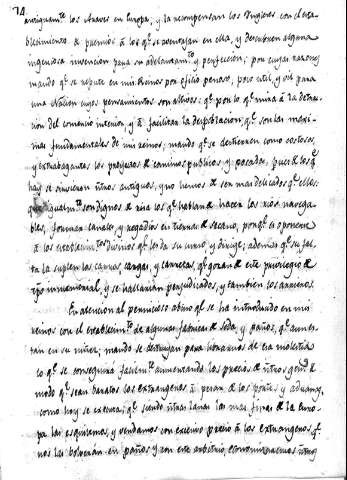 antiguam.te los Arabes en Europa, y la recompensan los Yngleses con el esta
blecimiento de premios à los q.e se aventajan en ella, y descubren alguna
ingeniosa invencion para su adelantam.to y perfeccion; por cuyas razones
mando q.e se repute en mis Reinos por oficio penoso, poco util, y vil para
una Nacion cuyos pensamientos son altivos: q.e por lo q.e mira à la
cion del comercio interior, y à facilitar la despoblacion, q.e son las maxi
mas fundamentales de mis reinos; mando q.e se destierren como costosos,
y extrabagantes los proyectos de caminos publicos, y posadas, pues de los q.e
hay se sirvieron ntros antiguos, y no hemos de ser mas delicados q.e ellos:
que igualm.te son dignos de risa los q.e hablan de hacer los rios navega
bles, formar canales, y regadios en tierras de secano, porq.e se oponen
à los establecim.tos Divinos q.e lo da su mano y dirige; ademas q.e su fal
ta la suplen los carros, cargas, y carretas, q.e gozan de este privilegio de
tpo inmemorial, y se hallarian perjudicados, y tambien los arrieros.
En atencion al pernicioso abuso q.e se ha introducido en mis
reinos con el establecim.to de algunas fabricas de seda, y paños, q.e aun es
tan en su niñez; mando se destruyan para libramos de esa molestia
lo q.e se conseguira facilm.te aumentando los precios de ntros gen.s de
modo q.e sean baratos los extrangeros à pesar de los portes, y aduanas,
como hoy se executa: q.e siendo ntras lanas las mas finas de la Euro
pa las esquilemos, y vendamos con excesivo precio à los extrangeros q.e
nos las bolveran en paños, y con este arbitrio, economizaremos ntros